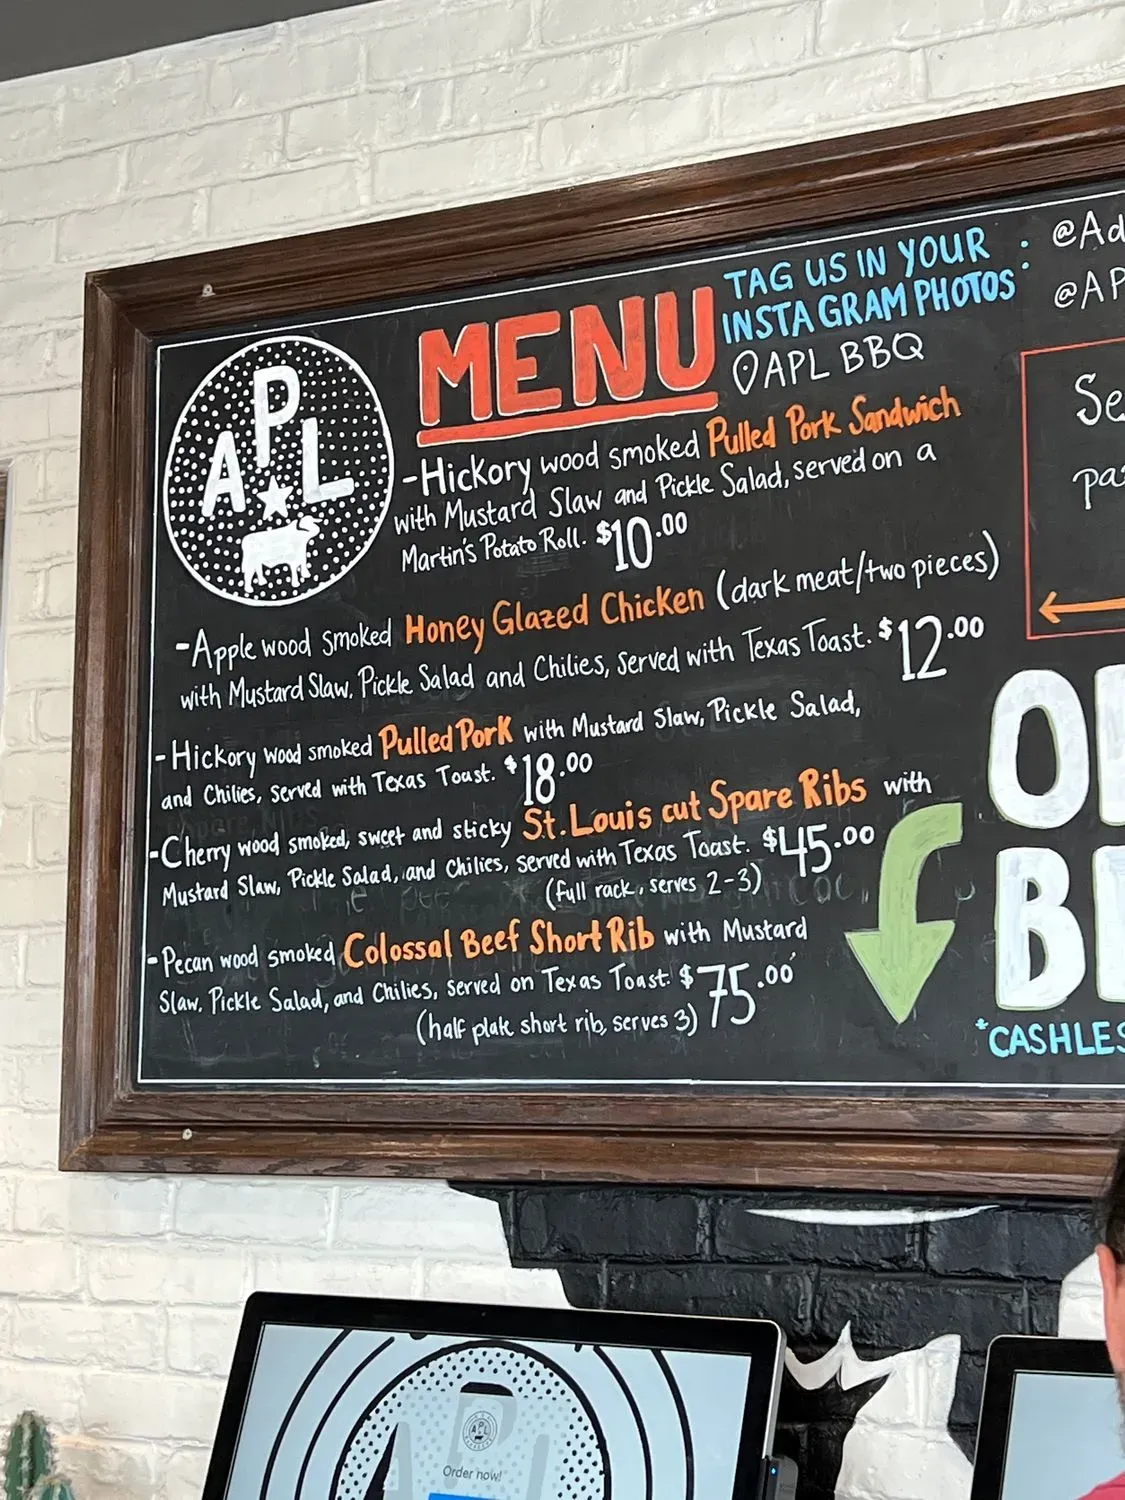 APL
MENU
TAG US IN YOUR
INSTAGRAM PHOTOS :
@Ad
@AP
APL BBQ
-Hickory wood smoked Pulled Pork Sandwich
with Mustard Slaw and Pickle Salad, served on a
Martin's Potato Roll. $10.00
-Apple wood smoked Honey Glazed Chicken (dark meat/two pieces)
with Mustard Slaw, Pickle Salad and Chilies, served with Texas Toast. $12.00
-Hickory wood smoked Pulled Pork with Mustard Slaw, Pickle Salad,
and Chilies, served with Texas Toast. $18.00
-Cherry wood smoked, sweet and sticky St. Louis cut Spare Ribs with
Mustard Slaw, Pickle Salad, and Chilies, served with Texas Toast. $45.00
(full rack, serves 2-3)
-Pecan wood smoked Colossal Beef Short Rib with Mustard
Slaw, Pickle Salad, and Chilies, served on Texas Toast. $75.00
(half plate short rib, serves 3)
Se
pa
O
B
*CASHLES
APL
Order now!